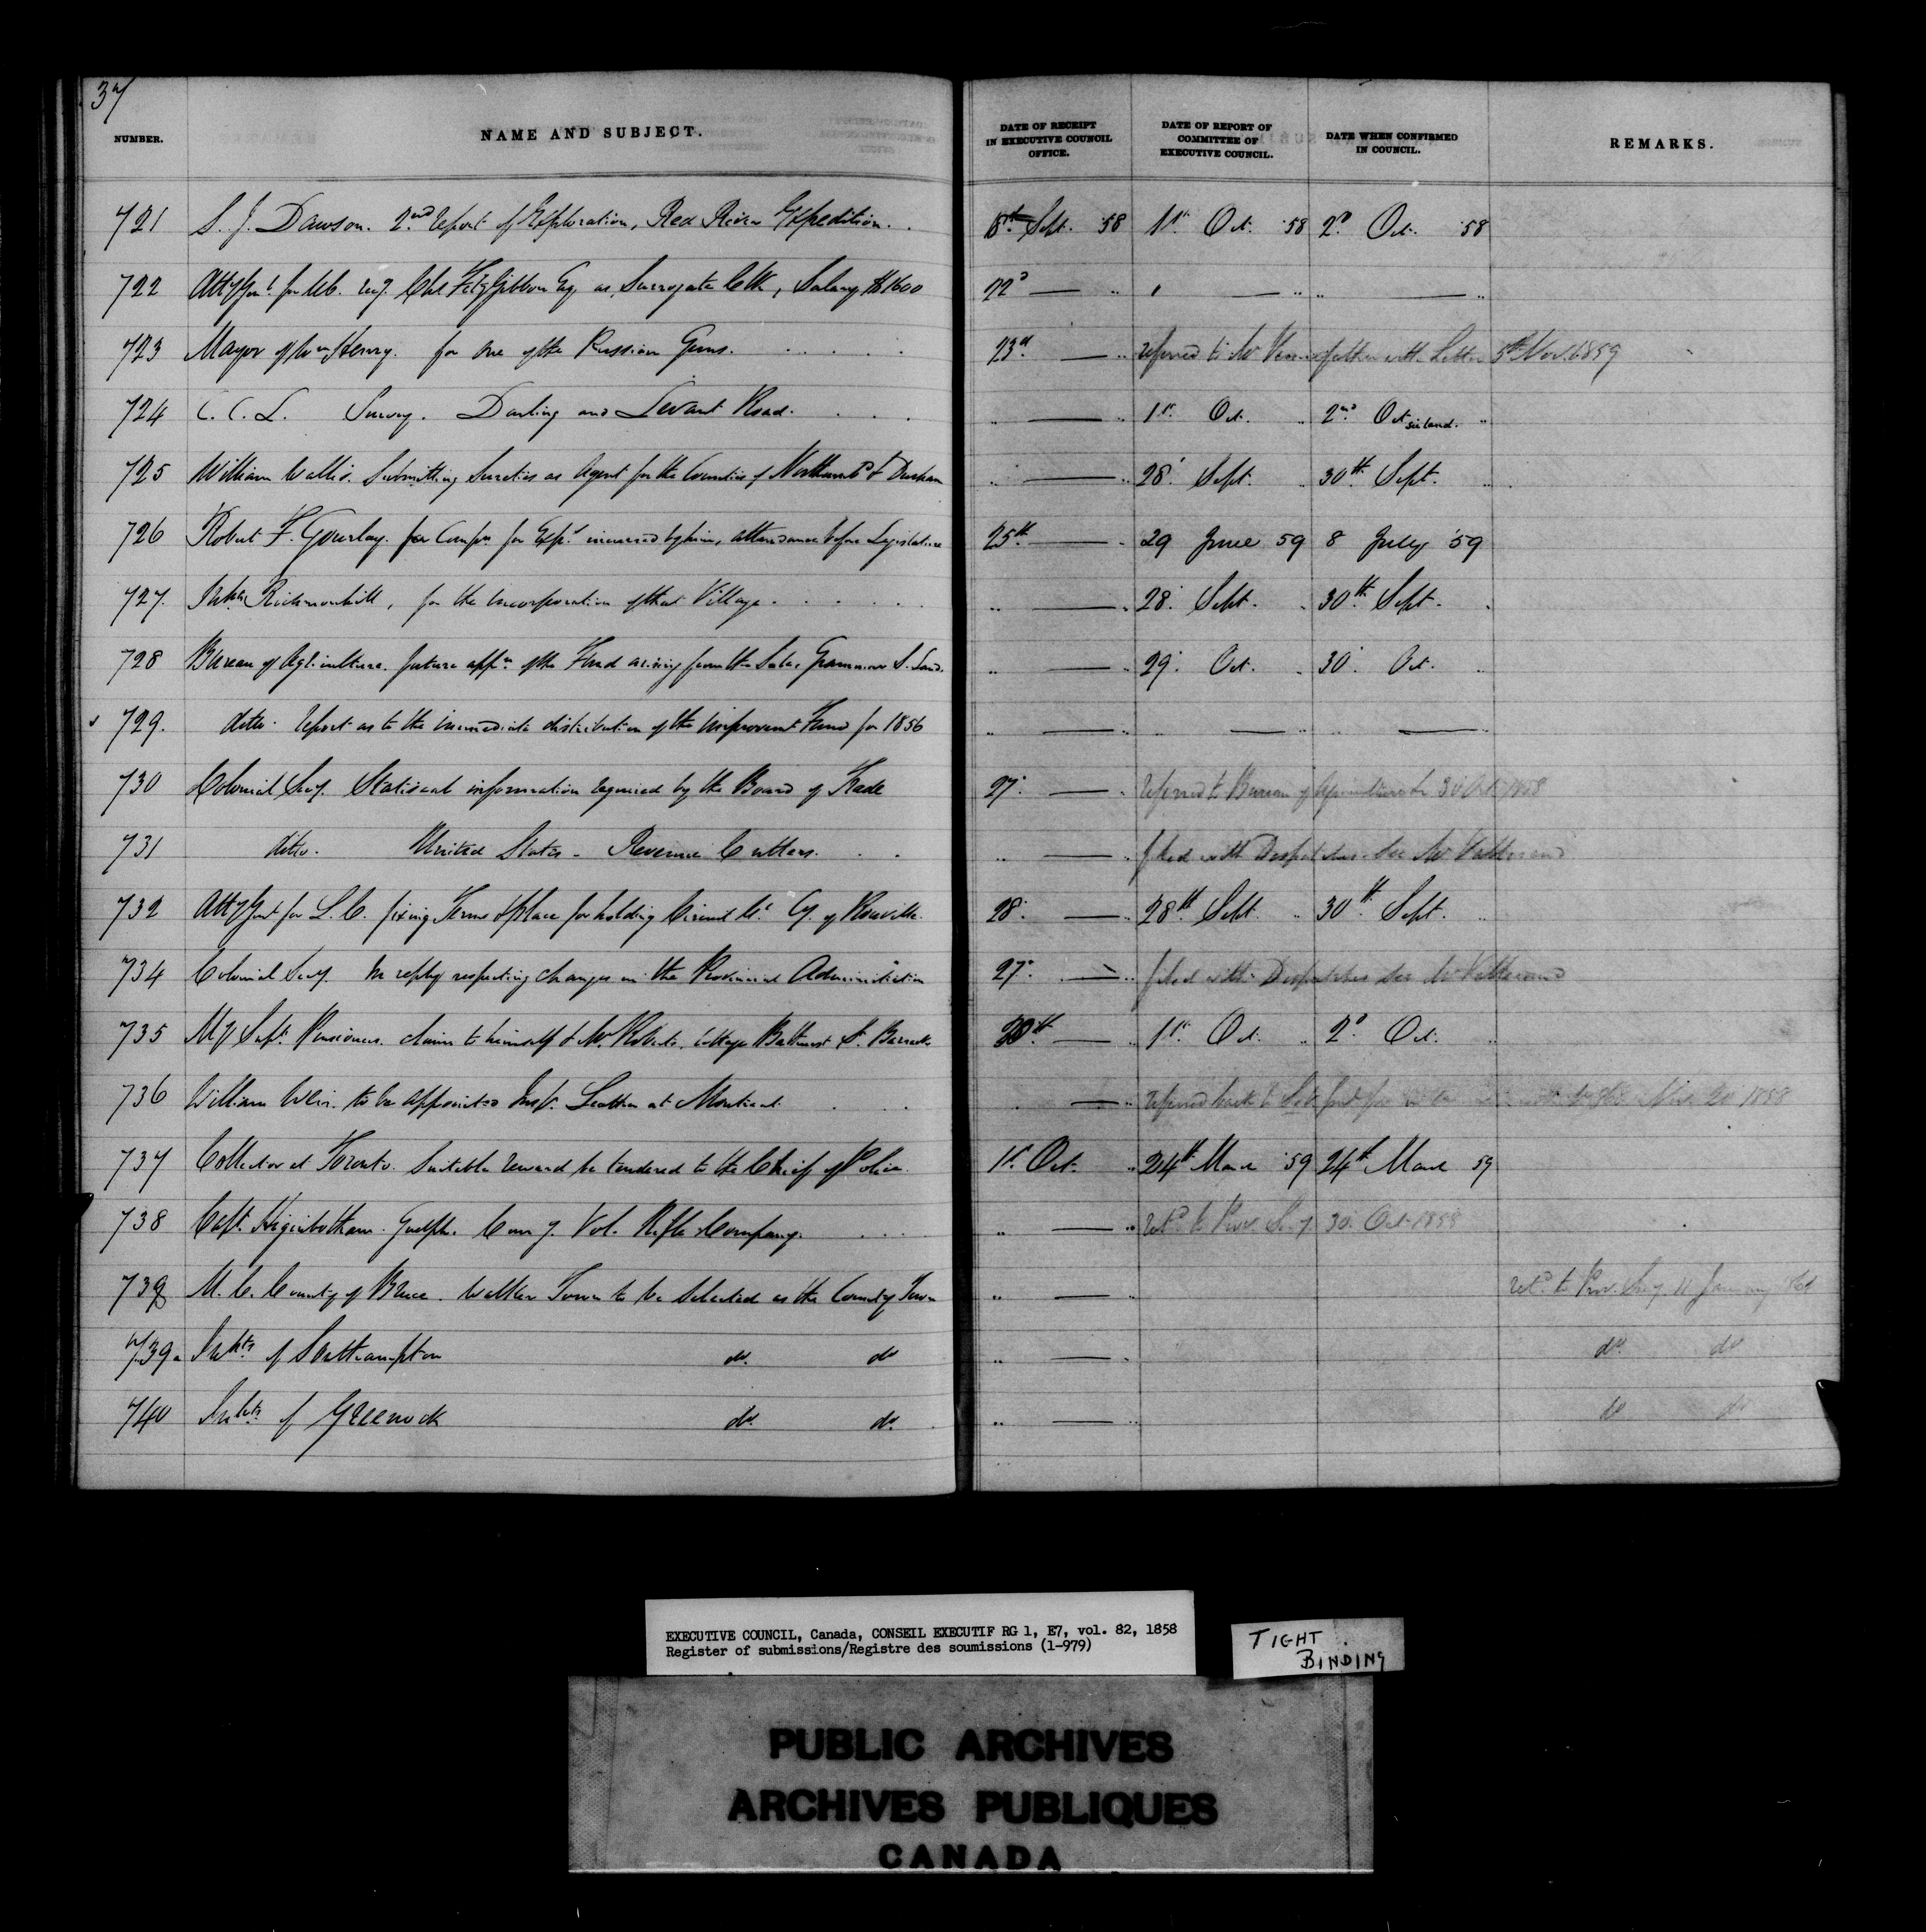 37
NUMBER. NAME AND SUBJECT. DATE OF RECEIPT IN EXECUTIVE COUNCIL OFFICE. DATE OF REPORT OF COMMITTEE OF EXECUTIVE COUNCIL. DATE WHEN CONFIRMED IN COUNCIL. REMARKS.
721 S. J. Dawson. 2nd report of Exploration, Red River Expedition. Sept. '58 1st Oct. '58 2d Oct. '58
722 Atty Genl for U.C. Chs FitzGibbon Esq as Surrogate Clk, Salary $1600 22d — " " — " " — "
723 Mayor of Wm Henry. for one of the Russian Guns. 23d — " referred to Mr with Letter 5th Nov. 1859
724 C. C. L. Survey. Darling and Levant Road. " — " 1st Oct. " 2nd Oct "
725 William Wallis. Submitting Sureties as Agent for the Counties of Northumbd & Durham " — " 28 Sept. " 30th Sept. "
726 Robert F. Gourlay. for Compn for Exps incurred by him, attendance before Legislature 25th — " 29 June 59 8 July '59
727. Inhts Richmondhill, for the Incorporation of that Village. " — " 28 Sept. " 30th Sept. "
728 Bureau of Agriculture. future appn of the Fund arising from the Sales Grammar S. Land. " — " 29 Oct. " 30 Oct. "
729. ditto. report as to the immediate distribution of the Improvent Fund for 1856 " — " " — " " — "
730 Colonial Secy. Statiscal information required by the Board of Trade 27 — " referred to Bureau of Agriculture 30 Oct 1858
731 ditto. United States - Revenue Cutters. " — " filed with Despatches. See Mr
732 Atty Genl for L. C. fixing Terms & Place for holding Circuit Ct Cy. of Rouville. 28 — " 28th Sept. " 30th Sept. "
734 Colonial Secy. In reply respecting changes in the Provincial Administration 27 — " filed with Despatches See Mr
735 Supt. Pensioners. claim to himself & Mr Roberts, cottage Bathurst St. Barracks 30th — " 1st Oct. " 2d Oct. "
736 William Weir. to be appointed Insp. Leather at Montreal. — " referred back to 1858
737 Collector at Toronto. Suitable reward be tendered to the Chief of Police. 1st Oct. " 24th March '59 24th March 59
738 Capt. Higinbotham. Guelph. Vol. Rifle Company. " — " retd to Prov. Secy. 30 Oct. 1858
739 M. C. County of Bruce. Walker Town to be Selected as the County Town " — " retd to Prov. Secy. 11 January
739a Inhts of Southampton do. do " — " do. do
740 Inhts of Greenock do. do. " — " do do
EXECUTIVE COUNCIL, Canada, CONSEIL EXECUTIF RG 1, E7, vol. 82, 1858
Register of submissions/Registre des soumissions (1-979)
TIGHT
BINDING
PUBLIC ARCHIVES
ARCHIVES PUBLIQUES
CANADA